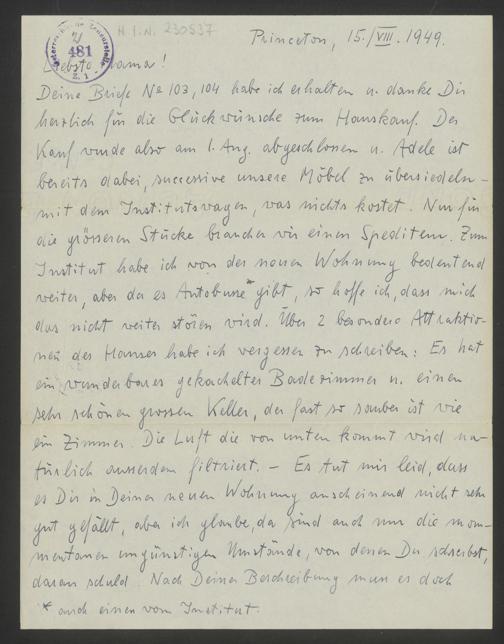 H.I.N. 230537
481
Z. 1
Princeton, 15./VIII. 1949.
Liebste Mama!
Deine Briefe No 103, 104 habe ich erhalten u. danke Dir
herzlich für die Glückwünsche zum Hauskauf. Der
Kauf wurde also am 1. Aug. abgeschlossen u. Adele ist
bereits dabei, successive unsere Möbel zu übersiedeln –
mit dem Institutswagen, was nichts kostet. Nur für
die grösseren Stücke brauchen wir einen Spediteur. Zum
Institut habe ich von der neuen Wohnung bedeutend
weiter, aber da es Autobusse* gibt, so hoffe ich, dass mich
das nicht weiter stören wird. Über 2 besondere Attraktio-
nen des Hauses habe ich vergessen zu schreiben: Es hat
ein wunderbares gekacheltes Badezimmer u. einen
sehr schönen grossen Keller, der fast so sauber ist wie
ein Zimmer. Die Luft die von unten kommt wird na-
türlich ausserdem filtriert. – Es tut mir leid, dass
es Dir in Deiner neuen Wohnung anscheinend nicht sehr
gut gefällt, aber ich glaube, da sind auch nur die mom-
mentanen ungünstigen Umstände, von denen Du schreibst,
daran schuld. Nach Deiner Beschreibung muss es doch
* auch einen vom Institut.